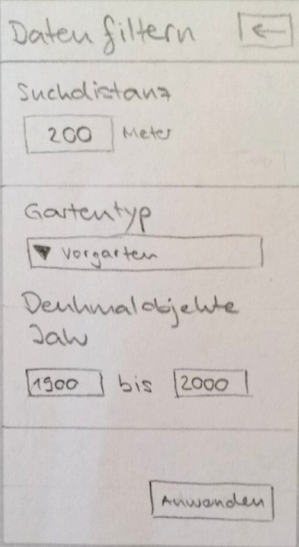 Daten filtern ←
Suchdistanz
200 Meter
Gartentyp
▼ Vorgarten
Denkmalobjekte
Jahr
1900 bis 2000
Anwenden